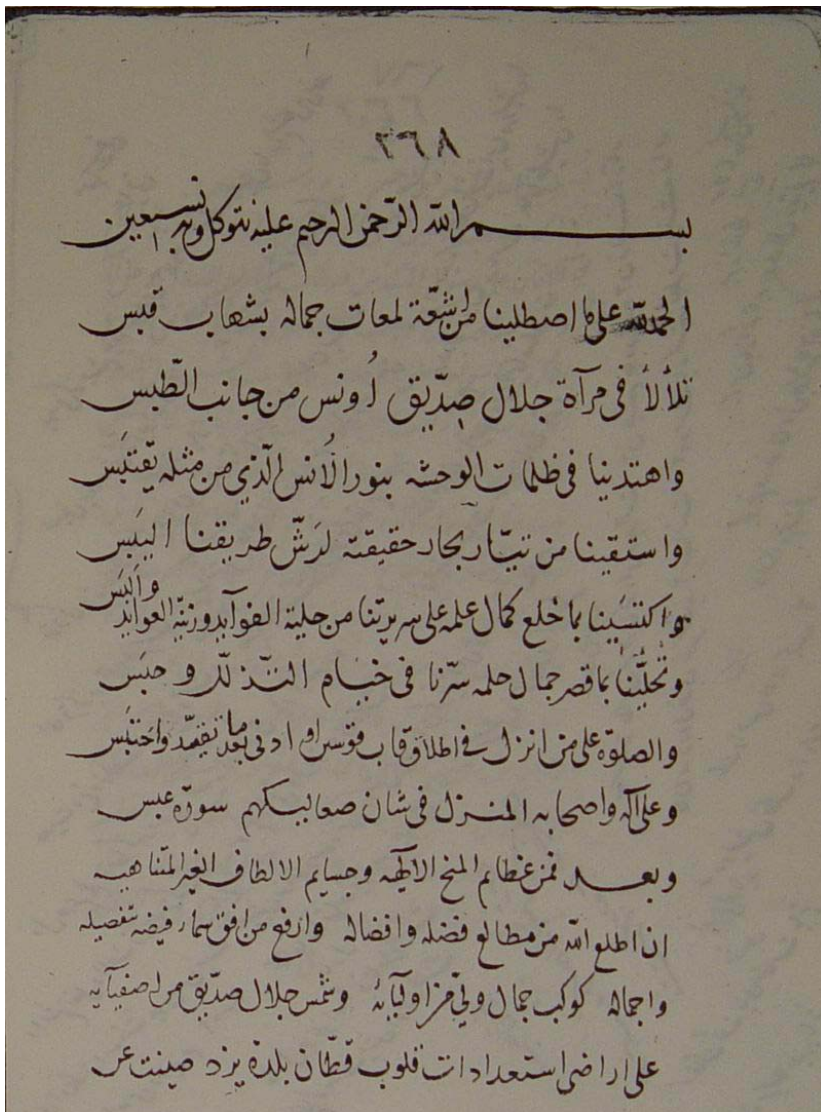 ٣٦٨
بسم الله الرحمن الرحيم عليه نتوكل وبه نستعين
الحمد لله على ما اصطلينا من اشعّة لمعات جماله بشهاب قبس
تلألأ فى مرآة جلال صدّيق اُونس من جانب الطّبس
واهتدينا فى ظلمات الوحشه بنور الاُنس الّذي من مثله يقتبَس
واستقينا من تيّار بحار حقيقته لرَشّ طريقنا اليبَس
واكتسَينا بما خلع كمال علمه على سريرتنا من حلية الفوآيد وزنيّة العوايد والبَس
وتحلّينا بما قصر جمال حلمه سرّنا فى خيام التذلّل وحبَس
والصلوة على من انزل فى اطلاق قاب قوسين او ادنى بعد ما تقيّد واحتبَس
وعلى آله واصحابه المنزل فى شان صعاليكهم سورة عبس
وبعد فمن عظايم المنح الالٓهيه وجسايم الالطاف الغير المتناهيه
ان اطلع الله من مطالع فضله وافضاله وارفع من افق سمار فيضه تفصيله
واجماله كوكب جمال وليّ من اوليآئه وشمس جلال صدّيق من اصفيآيه
على اراضى استعدادات قلوب قطّان بلدة يزد صينت عن